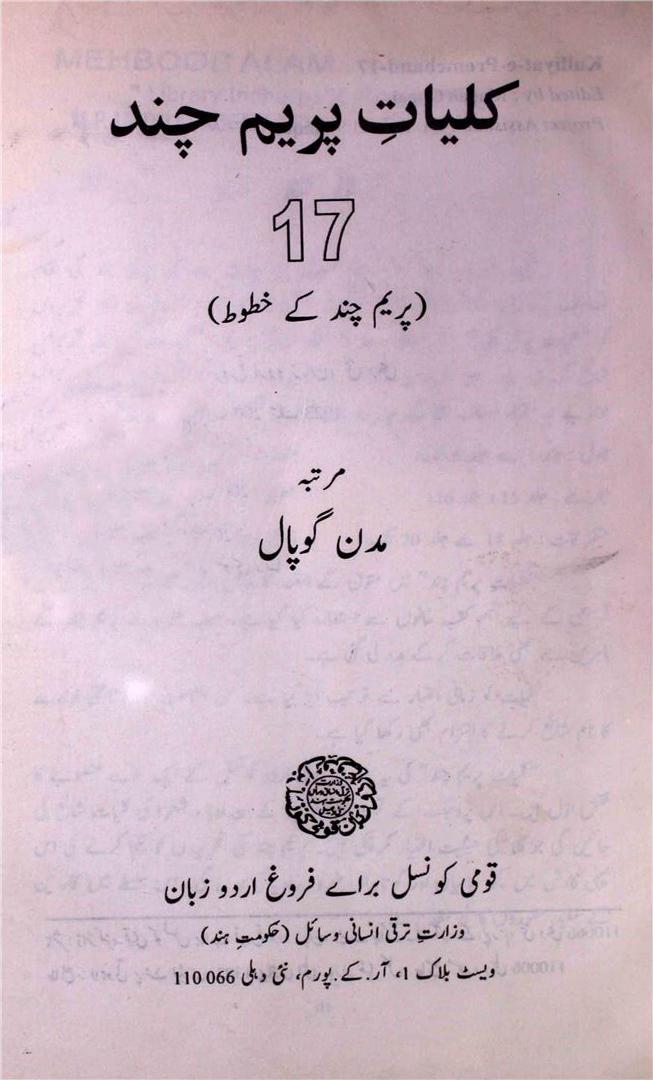 کلیاتِ پریم چند
17
(پریم چند کے خطوط)
مرتبہ
مدن گوپال
قومی کونسل براے فروغ اردو زبان
وزارتِ ترقی انسانی وسائل (حکومتِ ہند)
ویسٹ بلاک 1، آر. کے. پورم، نئی دہلی 110 066